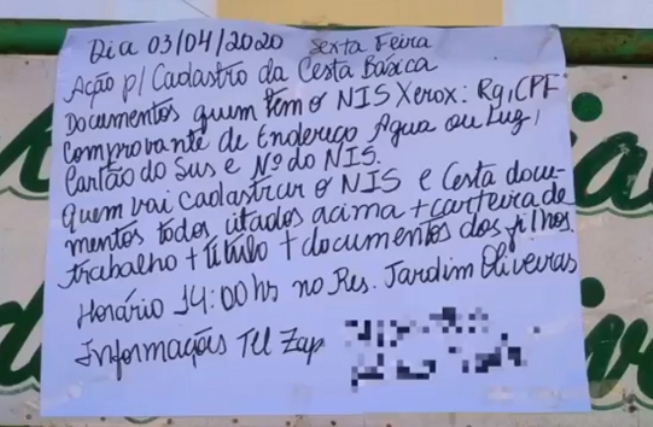 Dia 03/04/2020 Sexta Feira
Ação p/ Cadastro da Cesta Básica
Documentos quem tem o NIS Xerox: Rg, CPF
Comprovante de Endereço Agua ou Luz,
Cartão do Sus e Nº do NIS.
quem vai cadastrar o NIS e Cesta docu-
mentos todos citados acima + carteira de
trabalho + titulo + documentos dos filhos.
Horário 14:00 hs no Res. Jardim Oliveiras
Informações Tel Zap